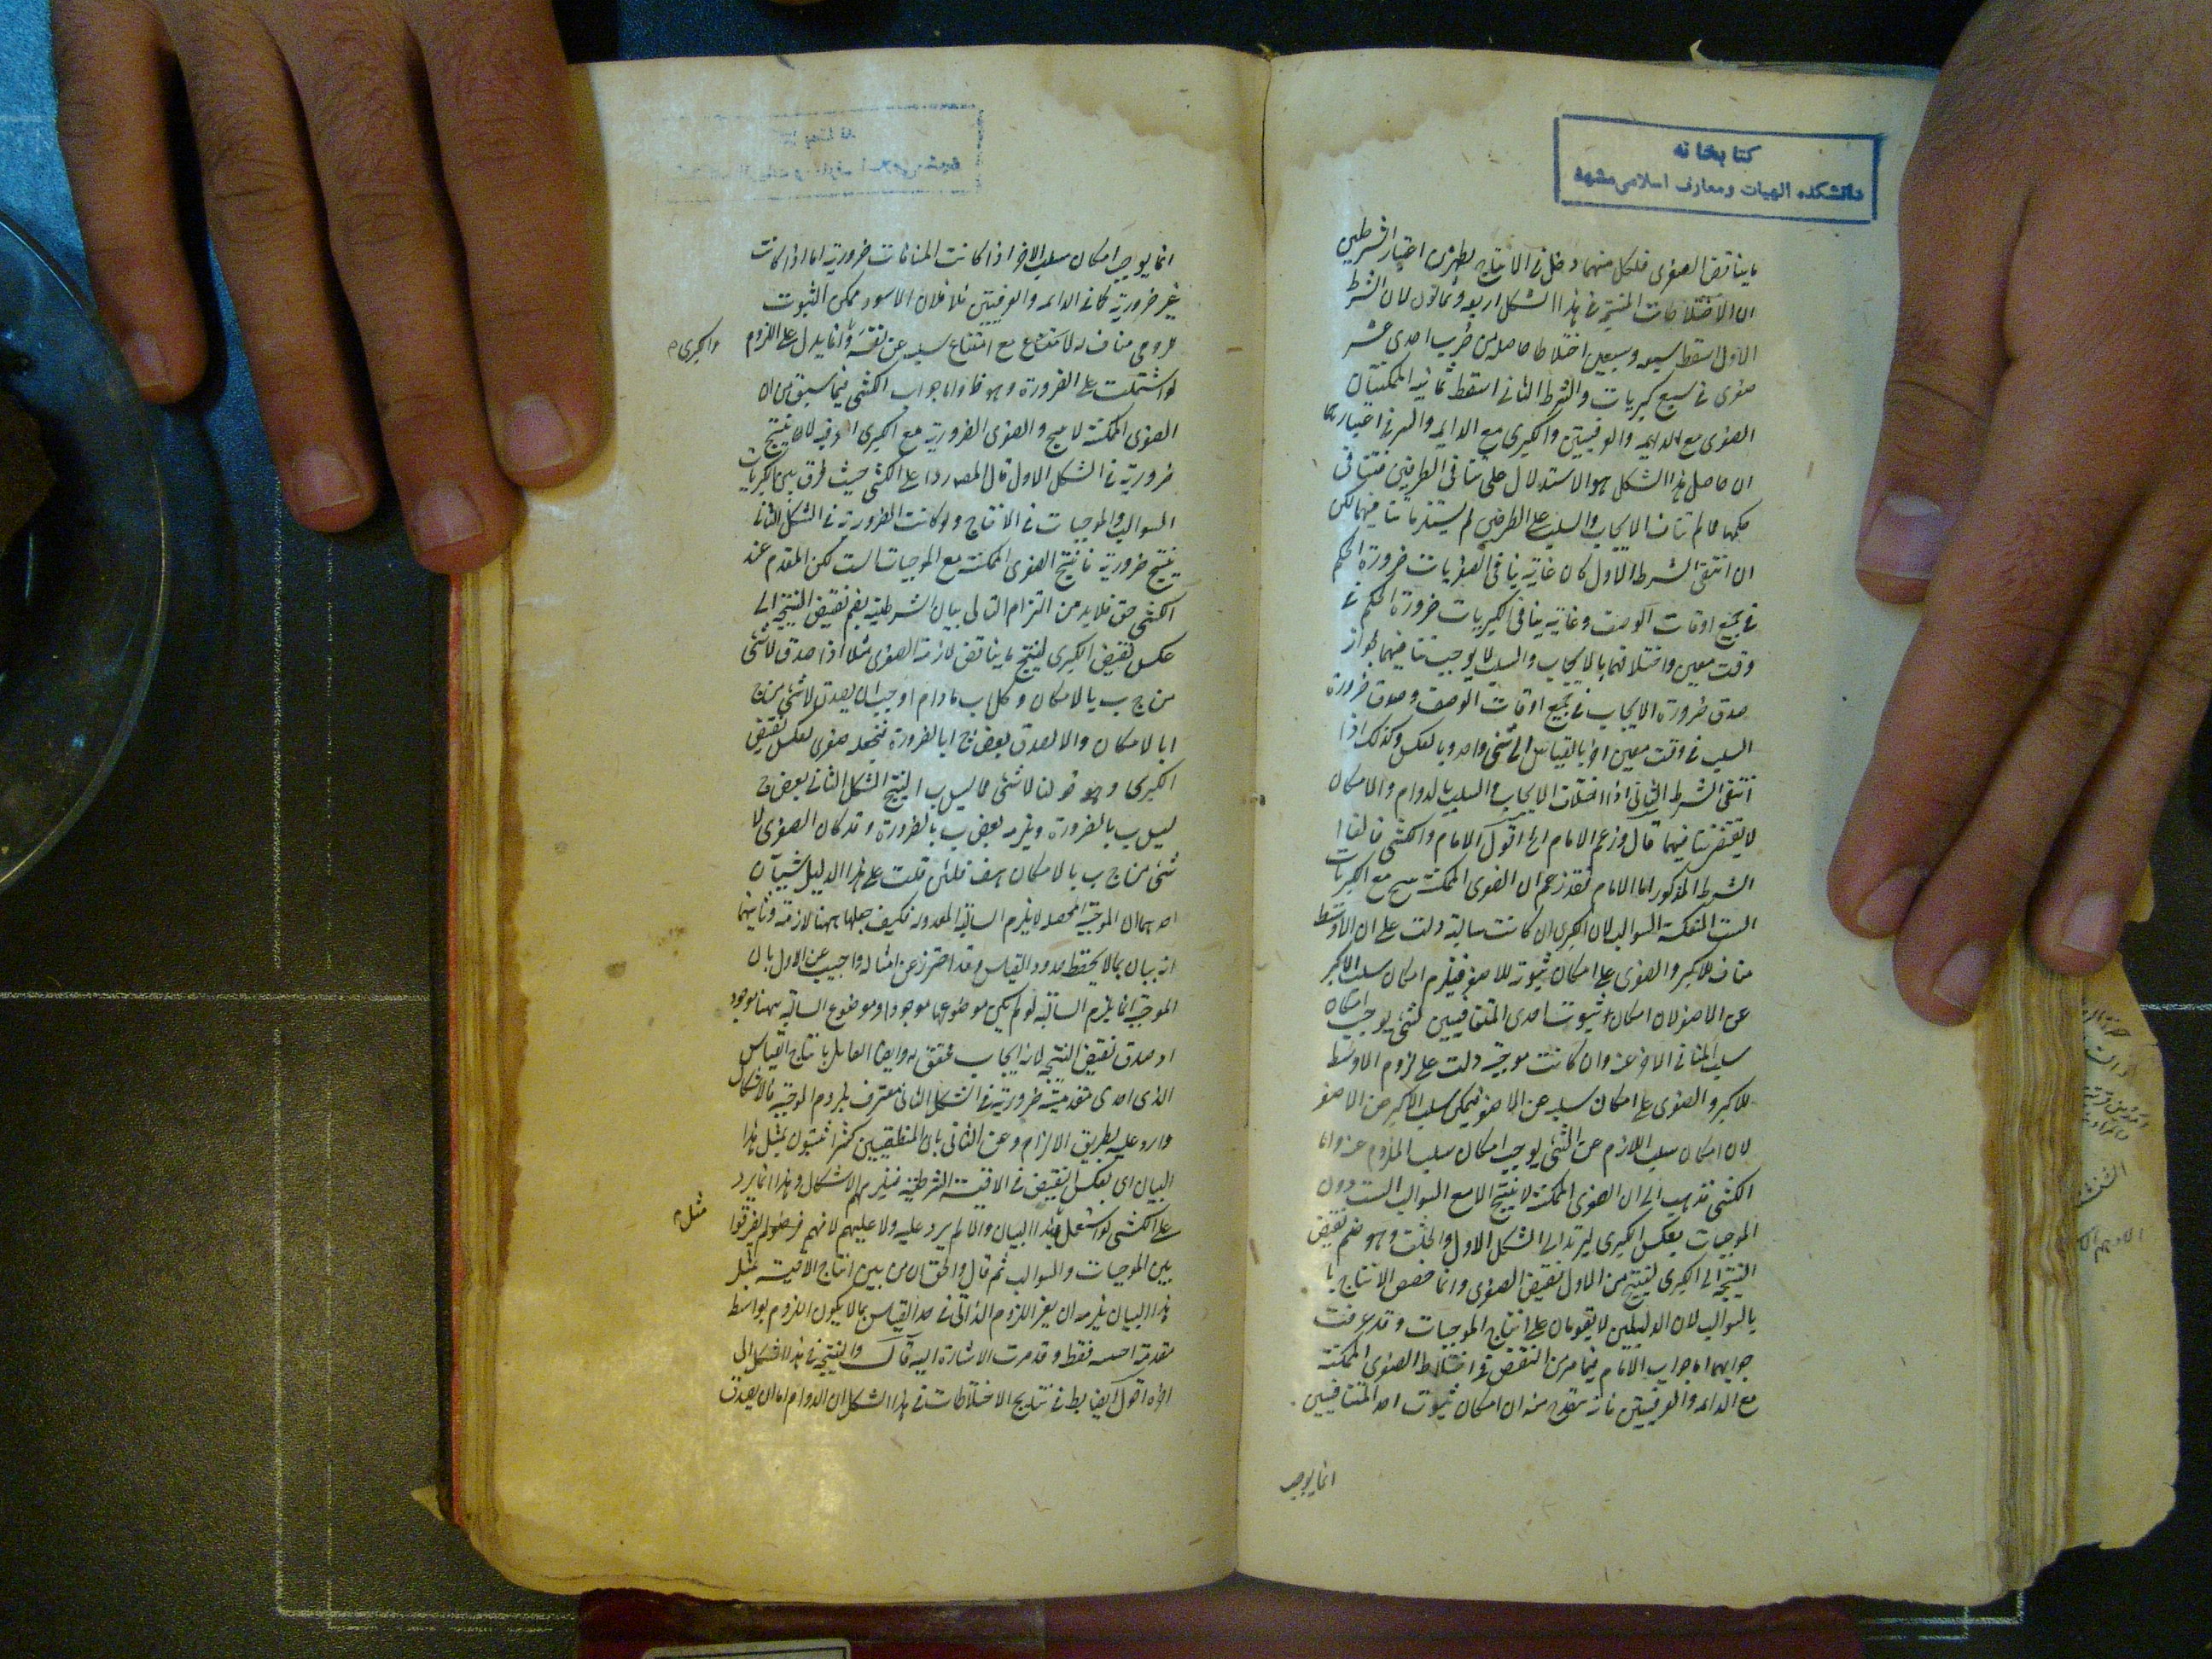 كتابخانه
دانشكده الهيات ومعارف اسلامى مشهد
ما يناقض الصغرى فلكل منهما دخل فى الانتاج يظهر من اعتبار الشرطين
ان الاختلاطات المنتجة فى هذا الشكل اربعة وثمانون لان الشرط
الاول اسقط سبعة وسبعين اختلاطا حاصلة من ضرب احدى عشر
صغرى فى سبع كبريات والشرط الثانى اسقط ثمانية الممكنتان
الصغرى مع الدايمة والعرفيتين والكبرى مع الدايمة والسر فى اعتبارهما
ان حاصل هذا الشكل هو الاستدلال على تنافى الطرفين فتنافى
حكمهما فما لم تناف الايجاب والسلب على الطرفين لم يستلزما تنافيهما لكن
ان انتفى الشرط الاول كان غاية ما فى الصغريات ضرورة الحكم
فى جميع اوقات الوصف وغاية ما فى الكبريات ضرورة الحكم فى
وقت معين واختلافهما بالايجاب والسلب لا يوجب تنافيهما لجواز
صدق ضرورة الايجاب فى جميع اوقات الوصف وصدق ضرورة
السلب فى وقت معين اخر بالقياس الى شئ واحد وبالعكس وكذلك اذا
انتفى الشرط الثانى اذ اختلاف الايجاب والسلب بالدوام والامكان
لا يقتضى تنافيهما قال وزعم الامام الخ اقول الامام والكشى خالفا
الشرط المذكور اما الامام فقد زعم ان الصغرى الممكنة تنتج مع الكبريات
الست المنعكسة السوالب لان الكبرى ان كانت سالبة دلت على ان الاوسط
مناف للاكبر والصغرى على امكان ثبوته للاصغر فيلزم امكان سلب الاكبر
عن الاصغر لان امكان ثبوت احدى المتنافيين لشئ يوجب امكان
سلب المنافى الاخر عنه وان كانت موجبة دلت على لزوم الاوسط
للاكبر والصغرى على امكان سلبه عن الاصغر فيمكن سلب الاكبر عن الاصغر
لان امكان سلب اللازم عن الشئ يوجب امكان سلب الملزوم عنه واما
الكشى فذهب الى ان الصغرى الممكنة لا ينتج الا مع السوالب الست دون
الموجبات بعكس الكبرى ليرتد الى الشكل الاول والخلف وهو ضم نقيض
النتيجة الى الكبرى لينتج من الاول نقيض الصغرى وانما خصص الانتاج با
بالسوالب لان الدليلين لا يقومان على انتاج الموجبات وقد عرفت
جوابهما اما جواب الامام فيما مر من النقض فى اختلاط الصغرى الممكنة
مع الدائمة والعرفيتين فانه يتضح منه ان امكان ثبوت احد المتنافيين
انما يوجب
انما يوجب امكان سلب الاخر اذا كانت المنافات ضرورية اما اذا كانت
غير ضرورية كما فى الدائمة والعرفيتين فلا فلان الاسود ممكن الثبوت
للرومى مناف له لا متناع مع امتناع سلبه عن نفسه وانما يدل على اللزوم
والكبرى
لو اشتملت على الضرورة وهو ظ واما جواب الكشى فيما سبق من ان
الصغرى الممكنة لا تنتج والصغرى الضرورية مع الكبرى العرفية لا ينتج
ضرورية فى الشكل الاول قال المصنف ردا على الكشى حيث فرق بين الكبريات
السوالب والموجبات فى الانتاج ولو كانت الضرورية فى الشكل الثانى
ينتج ضرورية ما نتج الصغرى الممكنة مع الموجبات الست لكن المقدم عند
الكشى حق فلابد من التزام التالى بيان الشرطية بضم نقيض النتيجة الى
عكس نقيض الكبرى لينتج ما يناقض لازمة الصغرى مثلا اذا صدق لا شئ
من ج ب بالامكان وكل ا ب مادام ا وجب ان يصدق لا شئ من ج
ا بالامكان والا لصدق بعض ج ا بالضرورة فنجعله صغرى لعكس نقيض
الكبرى وهو قولنا لا شئ مما ليس ب ا لينتج الشكل الثانى بعض ج
ليس ليس ب بالضرورة ويلزمه بعض ج ب بالضرورة وقد كان الصغرى لا
شئ من ج ب بالامكان هف فلئن قلت على هذا الدليل شيئان
احدهما ان الموجبة المحصلة لا يلزم السالبة المعدولة فكيف جعلها ههنا لازمة وثانيهما
انه بيان بما لا يحفظ حدود القياس وقد احترز عن امثاله واجيب عن الاول بان
الموجبة انما يلزم السالبة لو لم يكن موضوعها موجودا وموضوع السالبة ههنا موجود
اذ صدق نقيض النتيجة لانه ايجاب محقق له وايضا القايل بانتاج القياس
الذى احدى مقدمتيه ضرورية فى الشكل الثانى معترف بلزوم الموجبة فالاشكال
وارد عليه بطريق الالزام وعن الثانى بان المنطقيين كثيرا يثبتون بمثل هذا
البيان اى بعكس النقيض فى الاقيسة الشرطية فيلزمهم الاشكال وهذا انما يرد
على الكشى لو استعمل هذا البيان والا لم يرد عليه ولا عليهم لانهم فرضوا لم يفرقوا
مثل
بين الموجبات والسوالب ثم قال والحق ان من بين انتاج الاقيسة بمثل
هذا البيان يلزمه ان يفسر اللزوم الذاتى فى حد القياس بما لا يكون اللزوم بواسطة
مقدمة اجنبية فقط وقد مرت الاشارة اليه قال والنتيجة فى هذا الشكل الى
اخره اقول الضابط فى نتايج الاختلاطات فى هذا الشكل ان الدوام اما ان يصدق